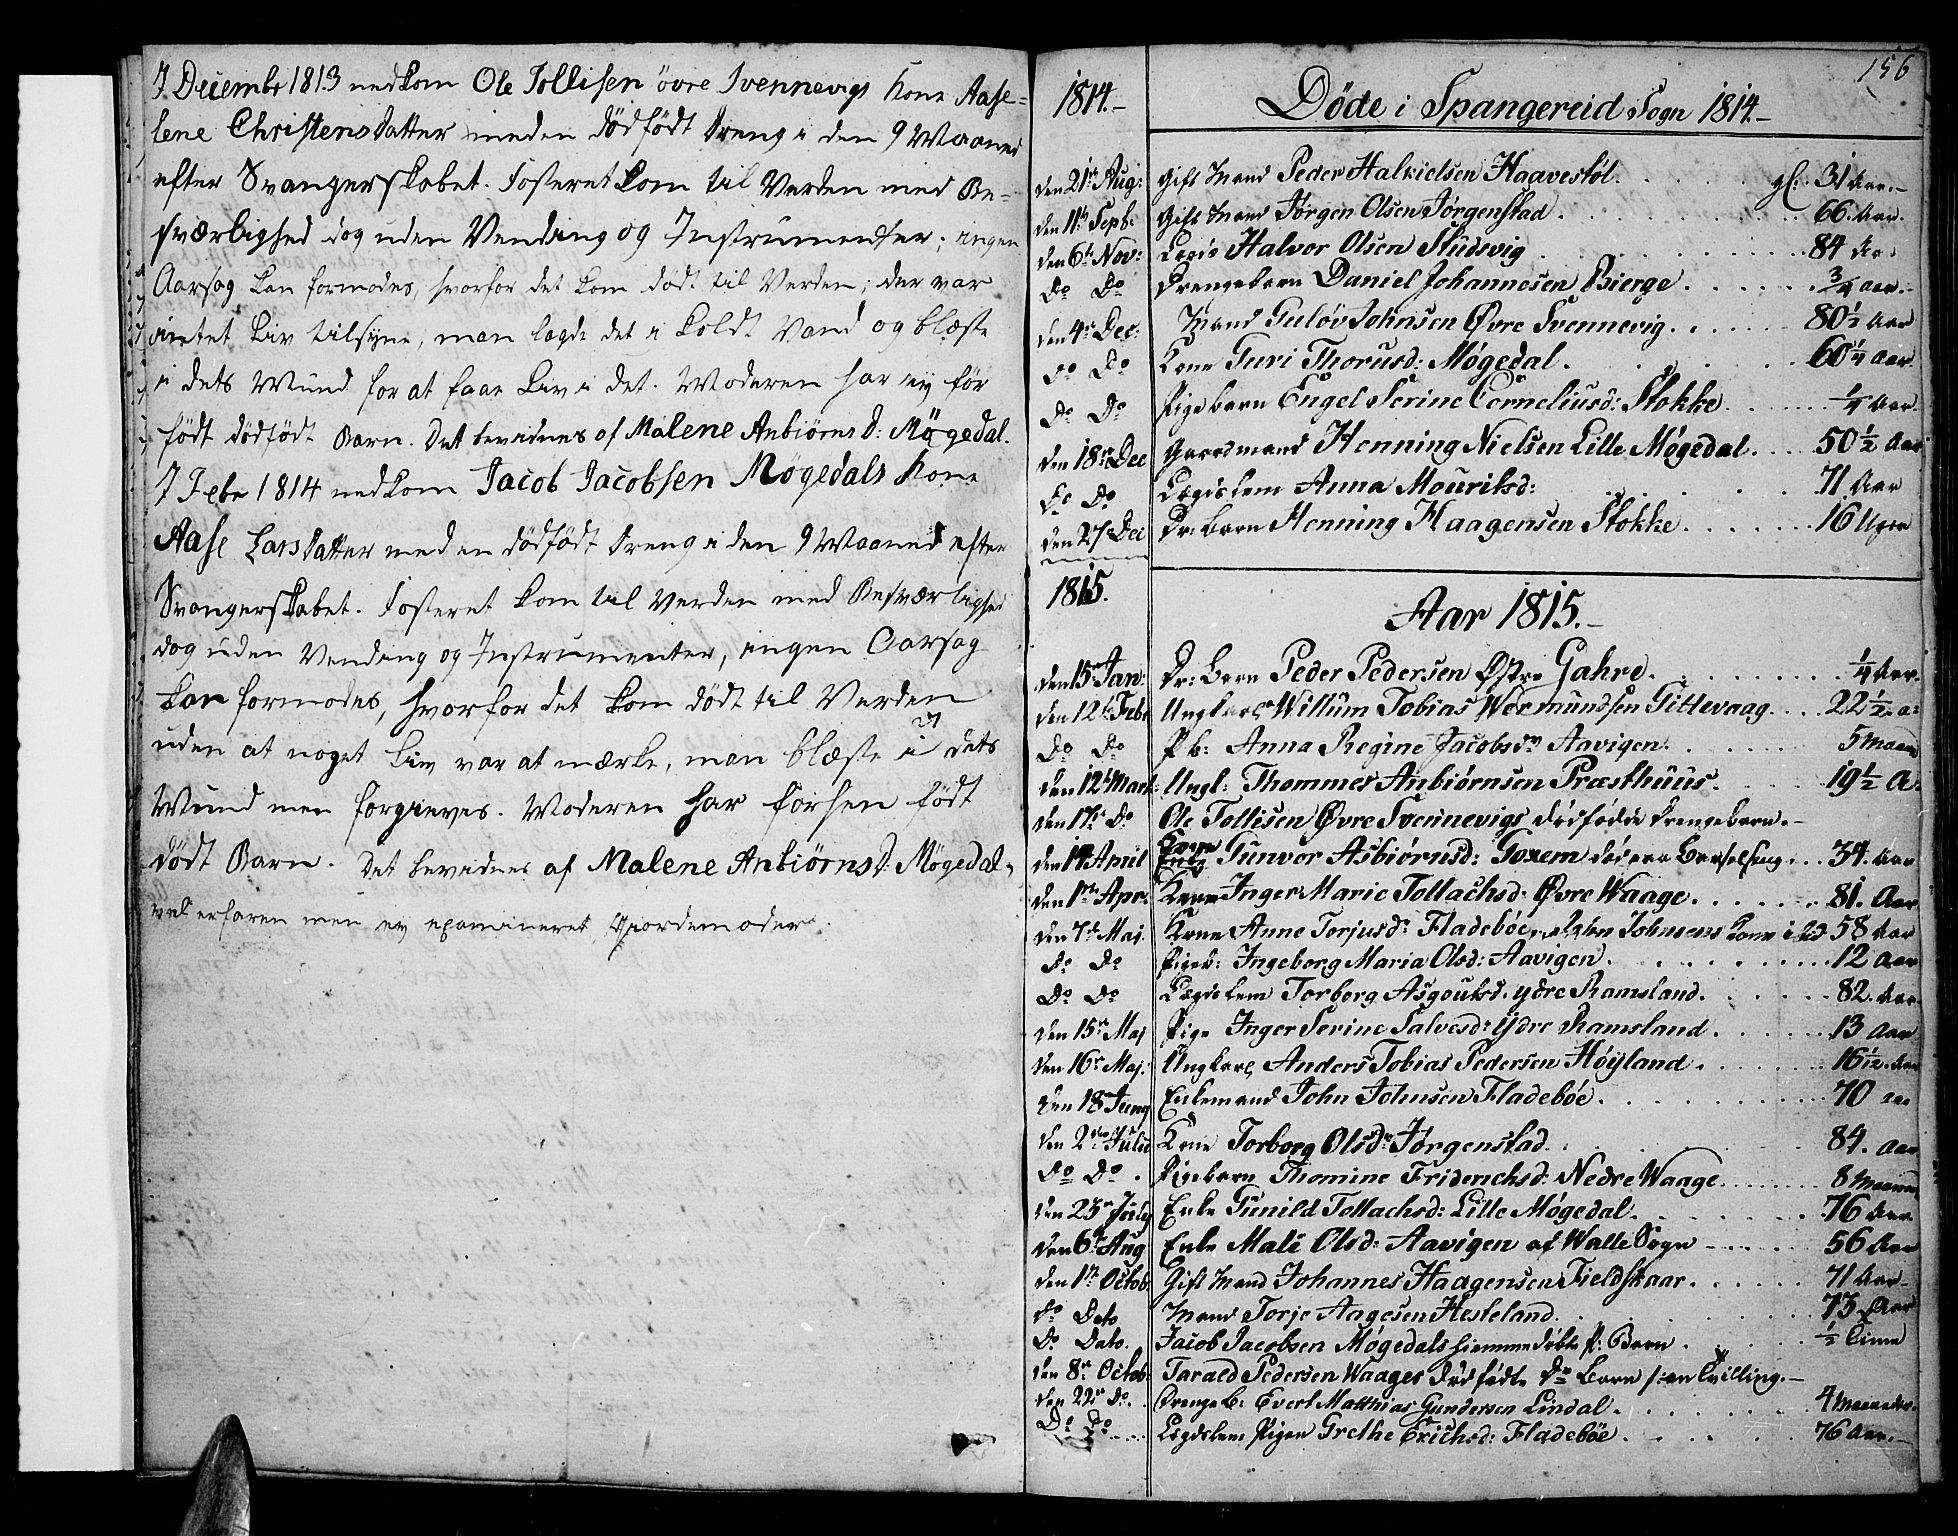 7 Decembr 1813 nedkom Ole Tollisen övre Svennevigs Kone Aase=
lene Christensdatter meden dödfödt Dreng i den 9 Maaned
efter Svangerskabet. Fosteret kom til Verden med Be-
sværlighed dog uden Vending og Instrumenter; ingen
Aarsag kan formodes, hvorfor det kom dödt til Verden; der var
intet Liv tilsyne, man lagde det i koldt Vand og blæste
i dets Mund for at faae Liv i det. Moderen har ey för
födt dödfödt Barn. Det bevidnes af Malene Anbiörns D: Mögedal.
7 Febr 1814 nedkom Jacob Jacobsen Møgedals Kone
Aase Larsdatter med en dödfödt Dreng i den 9 Maaned efter
Svangerskabet. Fosteret kom til Verden med Besværlighed
dog uden Vending og Instrumenter, ingen Aarsag
kan formodes, hvorfor det kom dödt til Verden
uden at noget Liv var at mærke, man blæste i dets
Mund men forgieves. Moderen har forhen födt
dödt Barn. Det bevidnes af Malene Anbiørns D: Møgedal,
vel erfaren men ey examineret Giordemoder.
156
1814.- Döde i Spangereid Sogn 1814.-
den 21de Aug: Gift Mand Peder Halkielsen Haavestøl. gl: 31 Aar.-
den 11te Sept: Gift Mand Jørgen Olsen Jørgenstad. 66. Aar.
den 6te Nov: Halvor Olsen Studsvig 84 Aar
Do Do Drengebarn Daniel Johannesen Bierge. 3/4 aar.
den 4de Dec: Mand Guløv Johnsen Øvre Svennevig. 80 1/2 Aar
Do Do Kone Guri Thorusd: Møgedal. 60 1/4 Aar
Do Do Pigebarn Engel Serine Corneliusd: Stokke. 1/4 Aar.
den 18de Dec Gaardmand Henning Nielsen Lille Møgedal. 50 1/2 Aar
Do Do Lægdslem Anna Mouritsd: 71 Aar
den 27de Dec Dr: Barn Henning Haagensen Stokke. 16 Uger
1815. Aar 1815.-
den 15de Jan: Dr: Barn Peder Pedersen Østre Gahre. 1/4 Aar.
den 12te Febr Ungkarl Willum Tobias Wermundsen Gittevaag. 22 1/2 a:
Do Do P b: Anna Regine Jacobsdr Aavigen. 5 Maan
den 12te Mart: Ungk: Thommes Anbiørnsen Præsthuus. 19 1/2 A.
den 17de Do Ole Tollisen Øvre Svennevigs dödfödde Drengebarn.-
den 14 April Kone Gunvor Asbiørnsd: Goxem död paa Barselseng. 34. Aar
den 1ste Apr: Kone Inger Marie Tollachsd: Øvre Waage. 81. Aar
den 7de Maj. Kone Anne Terjusdr Fladebøe, John Johnsens Kone 58 Aar
Do Do Pigeb: Ingeborg Maria Olsd: Aavigen. 12 Aar
Do Do Lægdslem Torborg Asgoutsd. ydre Ramsland. 82. Aar.
den 15de Maj Pige Inger Serine Salvesdr Ydre Ramsland. 13 Aar
den 16de Maj: Ungkarl Anders Tobias Pedersen Høyland. 16 1/2. Aar
den 18 Juny Enkemand John Johnsen Fladebøe. 70 aar
den 2den Julii Kone Torborg Olsdr Jørgenstad. 84. Aar
Do Do. Pigebarn Thomine Friderichsd: Nedre Waage. 8 Maaned
den 23de July Enke Gunild Tollachsd: Lille Møgedal. 76 Aar
den 6te Aug Enke Mali Olsd: Aavigen af Walle Sogn 56 Aar
den 1ste Octob Gift Mand Johannes Haagensen Fieldskaar. 71 Aar
Do Dato Mand Torje Aagesen Hesteland. 73 Aar
Do Dato. Jacob Jacobsen Møgedals hiemmedöbte P: Barn. 1/2 Time
den 8de Octob Tarald Pedersen Waages dödfödte Dr Barn en Tvilling.-
den 22de Do. Drenge B: Evert Matthias Gundersen Lindal. 4 Maaneder.
Do Do Lægdslem Pigen Grethe Erichsd: Fladebøe. 76 Aar.-